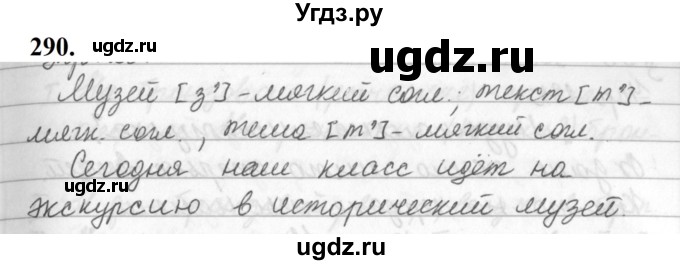 Угдз.ру
290.
ugdz.ru ugdz.ru
Музей [з'] - мягкий согл.; текст [т'] -
мягк. согл., тема [т'] - мягкий согл.
ugdz.ru ugdz.ru
Сегодня наш класс идёт на
экскурсию в исторический музей.
ugdz.ru